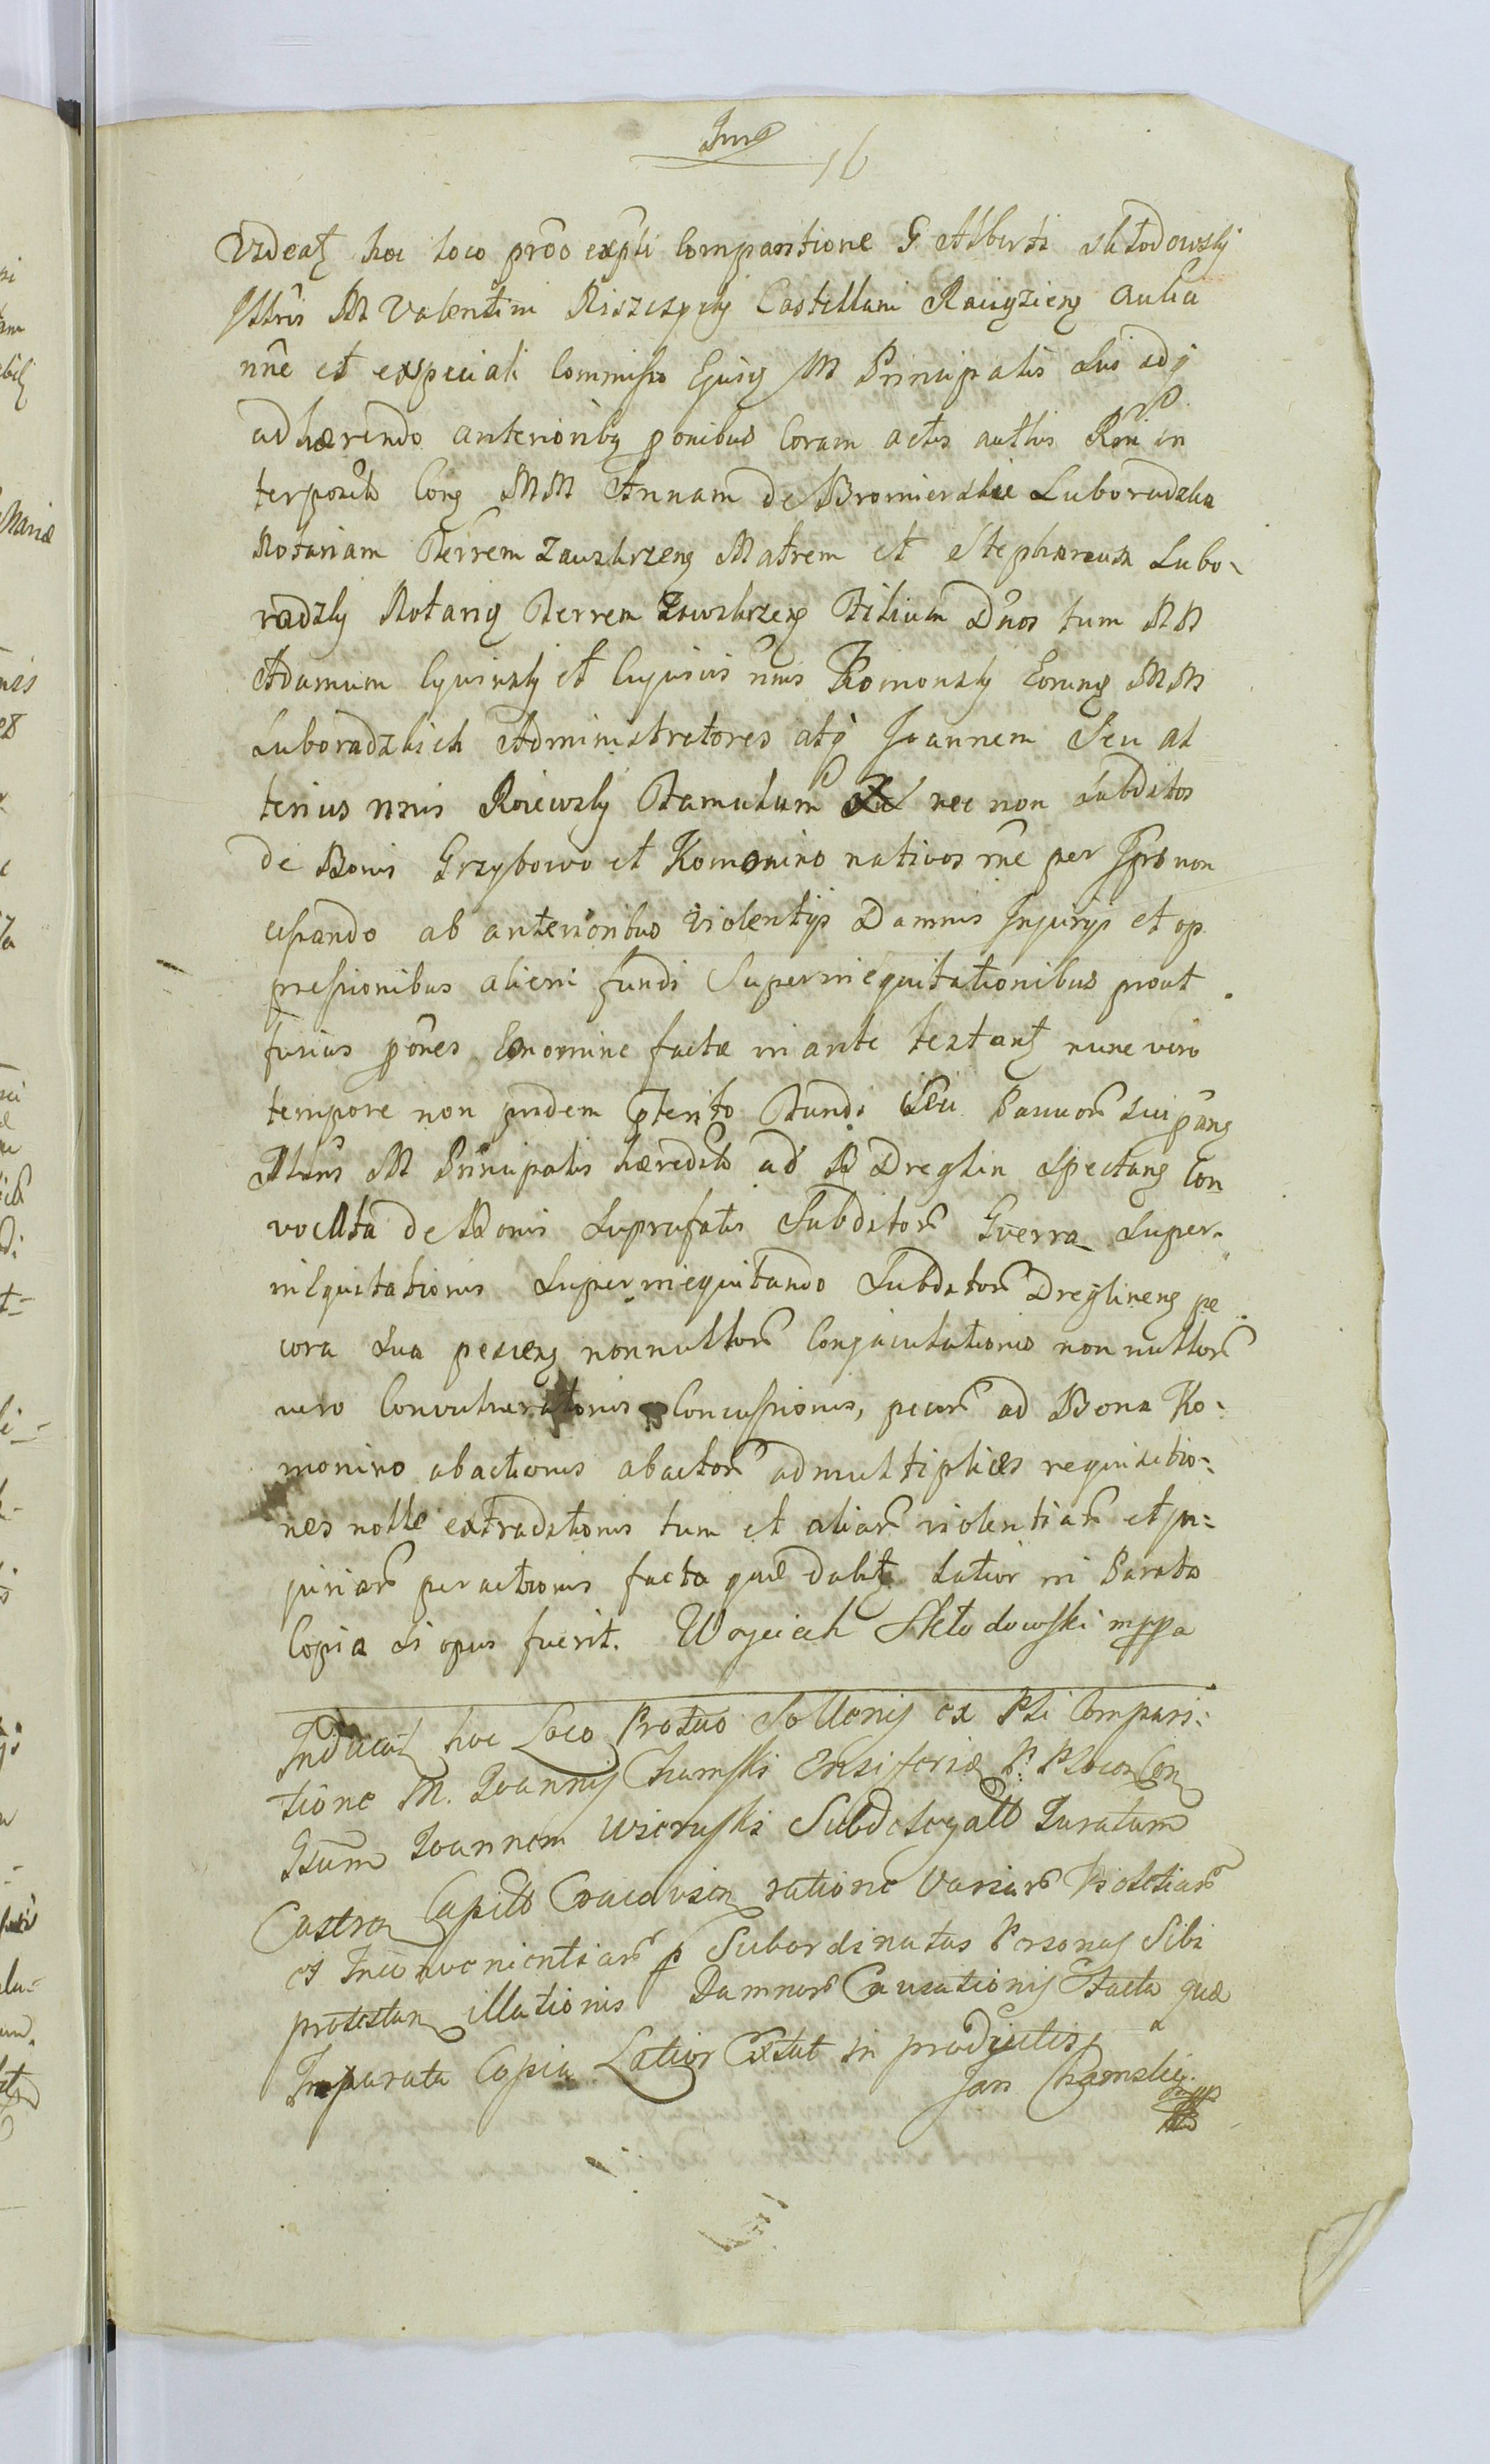 16
Videatz hoc loco prõo expłi Comparitione G Alberti Skłodowsky
Illtris M Valentini Riszczysky Castellani Raciązieng Aulica
nñe et expeciali Commisso Ejusq M Principalis Sui adq
adhærendo anterioribq ponibus Coram actis
terposit Conq MM Annam de Bromierskie Luboradzka
Notariam Terrem Zawskrzeng Matrem et Stephanum Lubo-
radzky Notariq Terrem Zawskrzeng Filium Dños tum NN
Adamum et Cujusvis nnis Komonsky Eorumq MM
Luboradzkich Administratores atq Joannem Seu al
terius nnis Roiewsky Famulum nec non Subditos
de Bonis Grzybowo et Komonino nativos rñe per Ipsos non
cessando ab anterioribus Violentijs Damnis Injurijs et op
pressionibus alieni fundi Superinequitationibus prout
fusius põnes Eonomine factæ in ante textantz nunc vero
tempore non pridem pterito Fundi Seu Pascuor
Illtris M Principalis hæredit ad B Dreglin Spectang Con
vocata de Bonis Suprafatis Subditor Guerra Super-
inEquitationis Superinequitando Subditor Dreglineng pe
cora Sua pesceng nonnullor Conjaculationis nonnullor
vero Convulnerationis Concussionis, pecor ad Bona Ko-
monino abactionis abactor ad multiplices requisitio-
nes nolle extraditionis tum et aliar violentiar et in-
juriar peractionis facta quæ dabitz Latior in Parata
Copia si opus fuerit. Woyciech Skłodowski mppa
Inducat hoc Loco Protõo Sollenis ex Pti Compari-
tione M. Joannis Chamski Ensiferidæ P. Plocen Con
Gsum Joannem Wieruski Subdelegatt Juratum
Castren Capitt Cracovien ratione Variar Violetiar
et Inconvenientiar p Subordinatas Personas Sibi
protestan illationis Damnor Causationis Facta quæ
In parata Copia Latior Extat in productis
Jan Chamski mpp